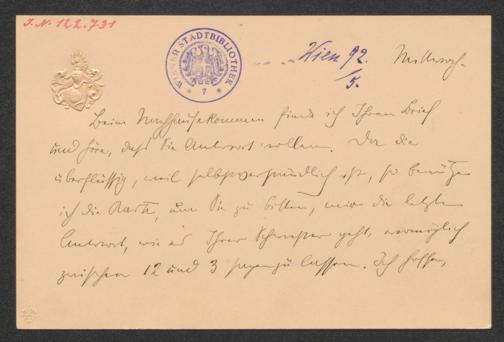 J.N. 122.731
WIENER STADTBIBLIOTHEK
7
Wien 92. Mittwoch
/5.
Beim Nachhausekommen finde ich Ihren Brief
und höre, daß Sie Antwort wollen. Da die
überflüssig, weil selbstverständlich ist, so benütze
ich die Karte, um Sie zu bitten, mir die letzte
Antwort, wie es Ihrer Schwester geht, womöglich
zwischen 12 und 3 sagen zu lassen. Ich hoffe,